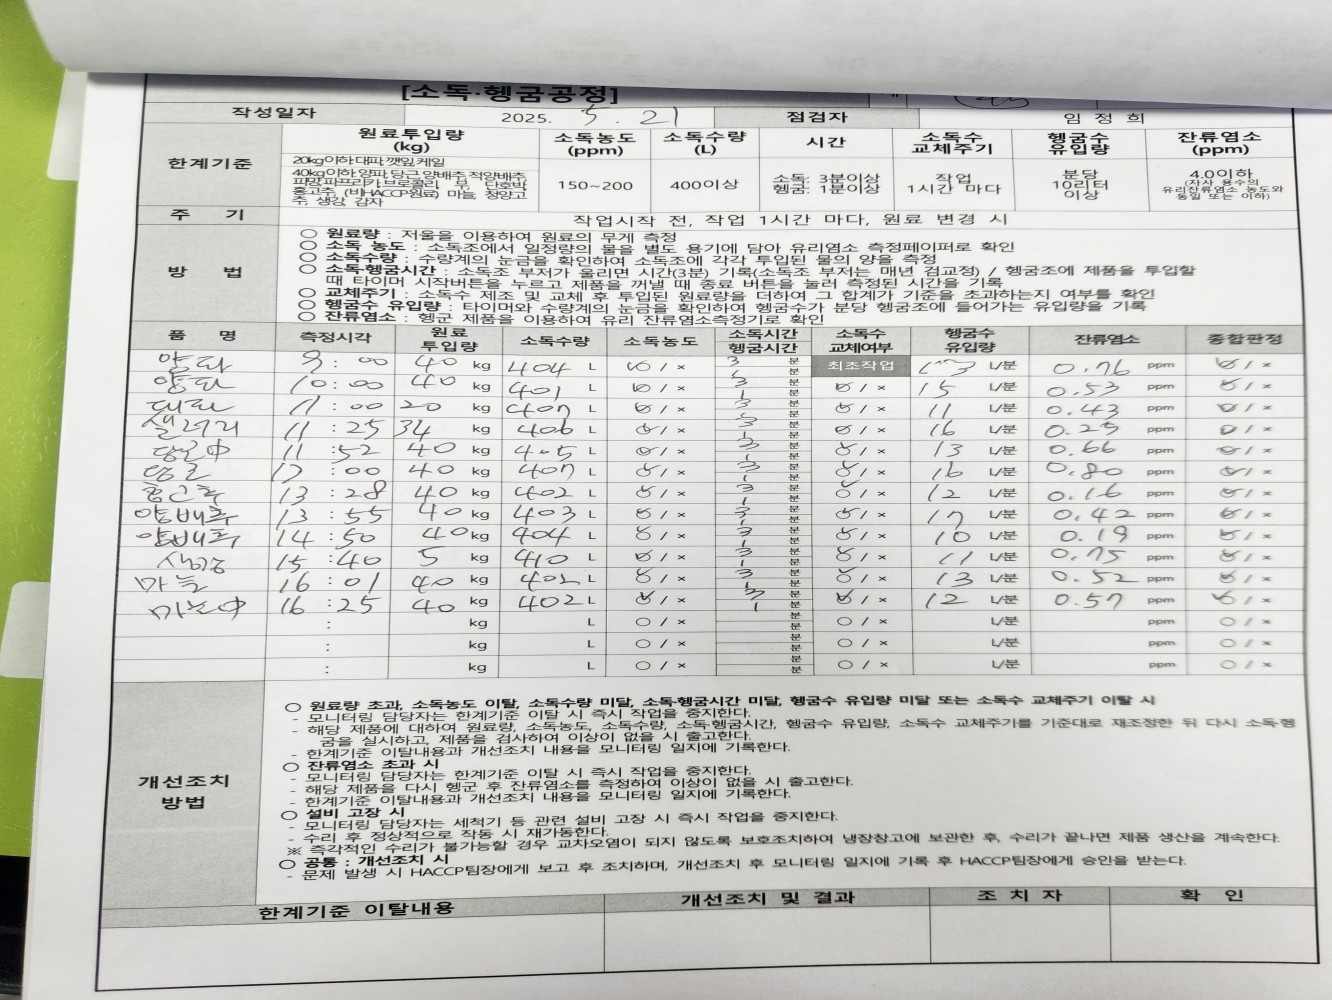 [소독·헹굼공정]
작성일자 2025. 5. 21 점검자 임 정 희
한계기준 원료투입량 (kg) 소독농도 (ppm) 소독수량 (L) 시간 소독수 교체주기 헹굼수 유입량 잔류염소 (ppm)
20kg이하:대파,깻잎,케일
40kg이하:양파,당근,양배추,적양배추,
파망,파프리카,브로콜리, 무, 단호박
홍고추, (비HACCP원료) 마늘, 청양고
추, 생강, 감자
150~200 400이상 소독: 3분이상 헹굼: 1분이상 작업 1시간 마다 분당 10리터 이상 4.0이하 (자사 용수의 유리잔류염소 농도와 동일 또는 이하)
주 기 작업시작 전, 작업 1시간 마다, 원료 변경 시
방 법
○ 원료량 : 저울을 이용하여 원료의 무게 측정
○ 소독 농도 : 소독조에서 일정량의 물을 별도 용기에 담아 유리염소 측정페이퍼로 확인
○ 소독수량 : 수량계의 눈금을 확인하여 소독조에 각각 투입된 물의 양을 측정
○ 소독·헹굼시간 : 소독조 부저가 울리면 시간(3분) 기록(소독조 부저는 매년 검교정) / 헹굼조에 제품을 투입할
때 타이머 시작버튼을 누르고 제품을 꺼낼 때 종료 버튼을 눌러 측정된 시간을 기록
○ 교체주기 : 소독수 제조 및 교체 후 투입된 원료량을 더하여 그 합계가 기준을 초과하는지 여부를 확인
○ 헹굼수 유입량 : 타이머와 수량계의 눈금을 확인하여 헹굼수가 분당 헹굼조에 들어가는 유입량을 기록
○ 잔류염소 : 헹군 제품을 이용하여 유리 잔류염소측정기로 확인
품 명 측정시각 원료 투입량 소독수량 소독농도 소독시간 헹굼시간 소독수 교체여부 헹굼수 유입량 잔류염소 종합판정
양파 9 : 00 40 kg 404 L ○ / × 3 분 1 분 최초작업 L/분 0.76 ppm ○ / ×
양파 10 : 00 40 kg 401 L ○ / × 3 분 1 분 ○ / × 15 L/분 0.53 ppm ○ / ×
대파 11 : 00 20 kg 407 L ○ / × 3 분 1 분 ○ / × 11 L/분 0.43 ppm ○ / ×
샐러리 11 : 25 34 kg 406 L ○ / × 3 분 1 분 ○ / × 16 L/분 0.25 ppm ○ / ×
당근中 11 : 52 40 kg 405 L ○ / × 3 분 1 분 ○ / × 13 L/분 0.66 ppm ○ / ×
당근 13 : 00 40 kg 407 L ○ / × 3 분 1 분 ○ / × 16 L/분 0.80 ppm ○ / ×
홍고추 13 : 28 40 kg 402 L ○ / × 3 분 1 분 ○ / × 12 L/분 0.16 ppm ○ / ×
양배추 13 : 55 40 kg 403 L ○ / × 3 분 1 분 ○ / × 17 L/분 0.42 ppm ○ / ×
양배추 14 : 50 40 kg 404 L ○ / × 3 분 1 분 ○ / × 10 L/분 0.19 ppm ○ / ×
생강 15 : 40 5 kg 410 L ○ / × 3 분 1 분 ○ / × 11 L/분 0.75 ppm ○ / ×
마늘 16 : 01 40 kg 402 L ○ / × 3 분 1 분 ○ / × 13 L/분 0.52 ppm ○ / ×
마늘中 16 : 25 40 kg 402 L ○ / × 3 분 1 분 ○ / × 12 L/분 0.57 ppm ○ / ×
: kg L ○ / × 분 분 ○ / × L/분 ppm ○ / ×
: kg L ○ / × 분 분 ○ / × L/분 ppm ○ / ×
: kg L ○ / × 분 분 ○ / × L/분 ppm ○ / ×
개선조치 방법
○ 원료량 초과, 소독농도 이탈, 소독수량 미달, 소독·헹굼시간 미달, 헹굼수 유입량 미달 또는 소독수 교체주기 이탈 시
- 모니터링 담당자는 한계기준 이탈 시 즉시 작업을 중지한다.
- 해당 제품에 대하여 원료량, 소독농도, 소독수량, 소독·헹굼시간, 헹굼수 유입량, 소독수 교체주기를 기준대로 재조정한 뒤 다시 소독·헹
굼을 실시하고, 제품을 검사하여 이상이 없을 시 출고한다.
- 한계기준 이탈내용과 개선조치 내용을 모니터링 일지에 기록한다.
○ 잔류염소 초과 시
- 모니터링 담당자는 한계기준 이탈 시 즉시 작업을 중지한다.
- 해당 제품을 다시 헹군 후 잔류염소를 측정하여 이상이 없을 시 출고한다.
- 한계기준 이탈내용과 개선조치 내용을 모니터링 일지에 기록한다.
○ 설비 고장 시
- 모니터링 담당자는 세척기 등 관련 설비 고장 시 즉시 작업을 중지한다.
- 수리 후 정상적으로 작동 시 재가동한다.
※ 즉각적인 수리가 불가능할 경우 교차오염이 되지 않도록 보호조치하여 냉장창고에 보관한 후, 수리가 끝나면 제품 생산을 계속한다.
○ 공통 : 개선조치 시
- 문제 발생 시 HACCP팀장에게 보고 후 조치하며, 개선조치 후 모니터링 일지에 기록 후 HACCP팀장에게 승인을 받는다.
한계기준 이탈내용 개선조치 및 결과 조 치 자 확 인